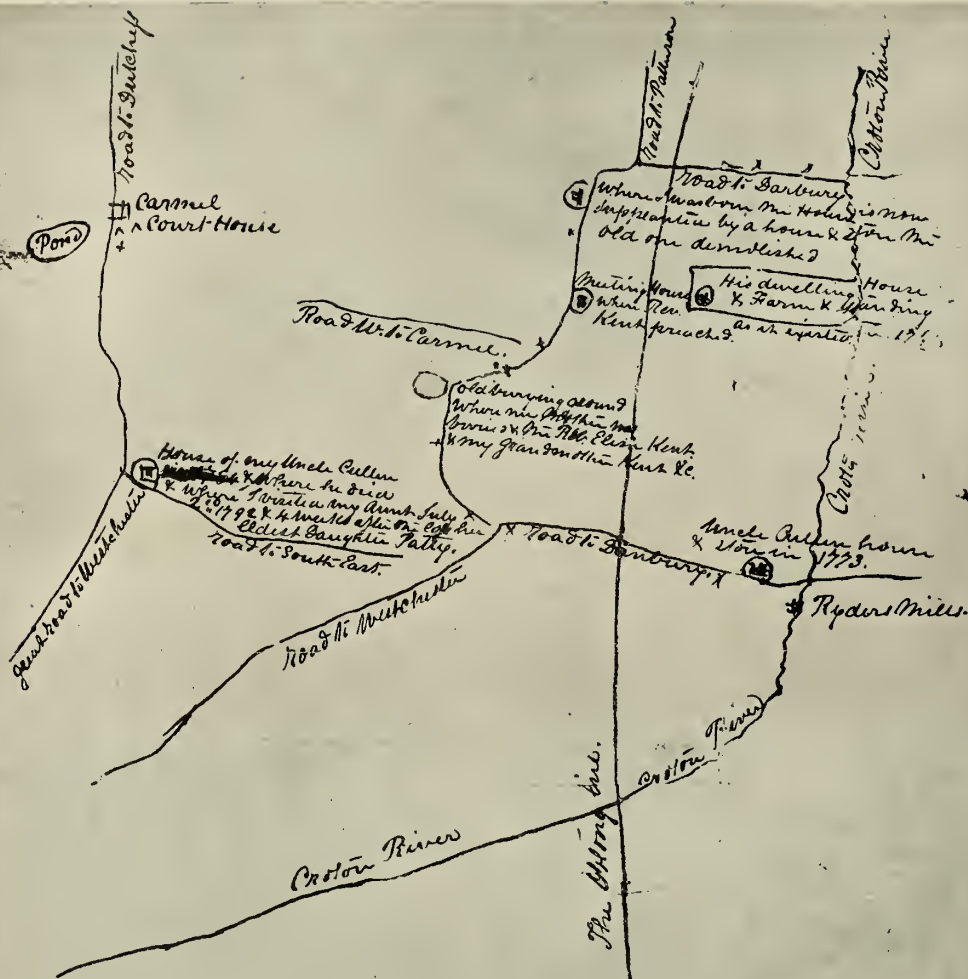 Road to Dutchess
Carmel
Court House
Pond
Road to Patterson
Croton River
Road to Danbury
Where I was born the House is now
supplanted by a house & Store the
old one demolished
Meeting House
where Rev.
Kent preached.
His dwelling House
& Farm & Standing
as it existed in 17
Road W. to Carmel.
old burying ground
where my Mother was
buried & the Rev. Elisha Kent
& my grandmother Kent &c.
House of my Uncle Cullen
& where he died
& where I visited my Aunt July
1792 & 4 weeks after the
Eldest Daughter Patty.
road to South East.
great road to Westchester
Road to Westchester
Road to Danbury
Uncle Cullen house
& Store in 1773.
Croton River
Ryders Mills.
Croton River
The Oblong line.
Croton River